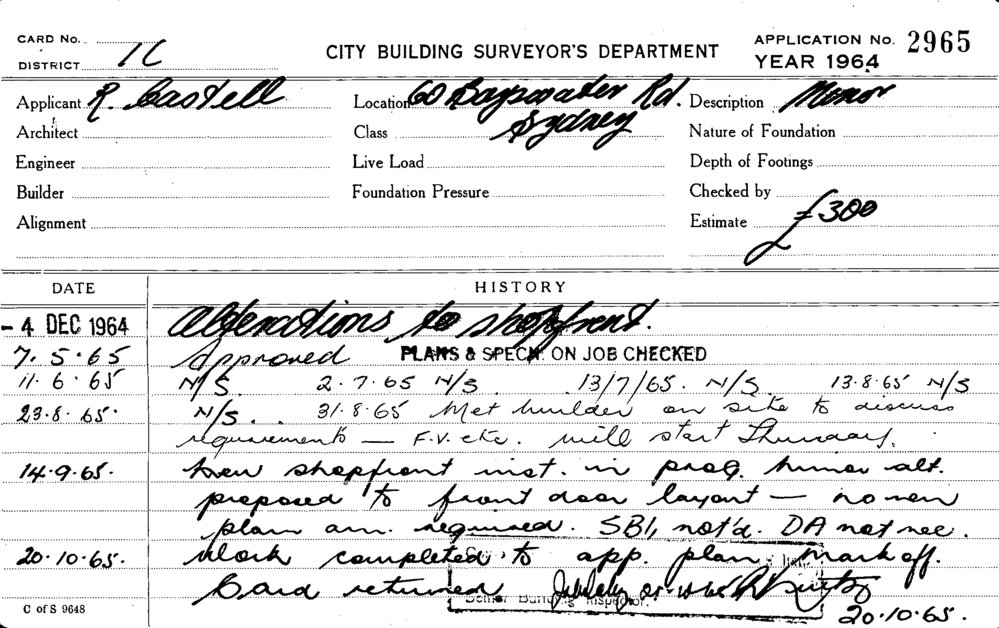 CARD No.
DISTRICT 1C
CITY BUILDING SURVEYOR'S DEPARTMENT
APPLICATION No. 2965
YEAR 1964
Applicant R. Castell
Location 60 Bayswater Rd.
Sydney
Description Minor
Architect
Class
Nature of Foundation
Engineer
Live Load
Depth of Footings
Builder
Foundation Pressure
Checked by
Alignment
Estimate £300
DATE
HISTORY
- 4 DEC 1964 Alterations to shopfront.
7. 5. 65 Approved PLANS & SPECN. ON JOB CHECKED
11. 6. 65 N/S. 2.7.65 N/S 13/7/65. N/S 13.8.65 N/S
23.8.65. N/S. 31.8.65 Met builder on site to discuss
requirements — F.V. etc. will start Thursday.
14.9.65. New shopfront inst. in prog. minor alt.
proposed to front door layout — no new
plan am. required. SBI, not'd. DA not nec.
20.10.65. Work completed to app. plan Mark off.
Card returned
Senior Building Inspector.
20.10.65.
C of S 9648